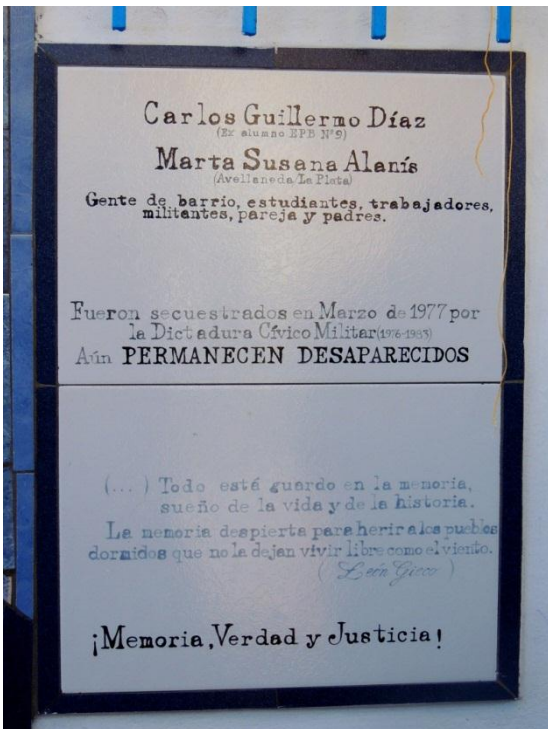 Carlos Guillermo Díaz
(Ex alumno EPB Nº9)
Marta Susana Alanís
(Avellaneda/La Plata)
Gente de barrio, estudiantes, trabajadores,
militantes, pareja y padres.
Fueron secuestrados en Marzo de 1977 por
la Dictadura Cívico Militar (1976-1983)
Aún PERMANECEN DESAPARECIDOS
(...) Todo está guardo en la memoria,
sueño de la vida y de la historia.
La memoria despierta para herir a los pueblos
dormidos que no la dejan vivir libre como el viento.
(León Gieco)
¡Memoria, Verdad y Justicia!